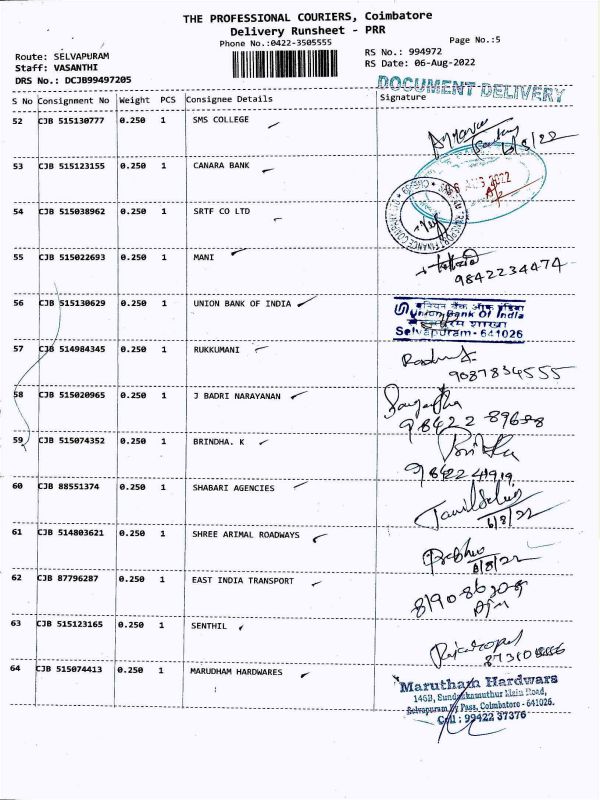 THE PROFESSIONAL COURIERS, Coimbatore
Delivery Runsheet - PRR
Phone No.:0422-3505555
Page No.:5
Route: SELVAPURAM
Staff: VASANTHI
DRS No.: DCJB99497205
RS No.: 994972
RS Date: 06-Aug-2022
DOCUMENT DELIVERY
S No Consignment No Weight PCS Consignee Details Signature
52 CJB 515130777 0.250 1 SMS COLLEGE
6/8/22
53 CJB 515123155 0.250 1 CANARA BANK
AUG 2022
54 CJB 515038962 0.250 1 SRTF CO LTD
55 CJB 515022693 0.250 1 MANI
9842234474
56 CJB 515130629 0.250 1 UNION BANK OF INDIA
यूनियन बैंक ऑफ इंडिया
Union Bank Of India
शाखा
Selvapuram - 641026
57 CJB 514984345 0.250 1 RUKKUMANI
9087834555
58 CJB 515020965 0.250 1 J BADRI NARAYANAN
Sangeetha
59 CJB 515074352 0.250 1 BRINDHA. K
60 CJB 88551374 0.250 1 SHABARI AGENCIES
Tamilselvi
6/8/22
61 CJB 514803621 0.250 1 SHREE ARIMAL ROADWAYS
Prabhu
6/8/22
62 CJB 87796287 0.250 1 EAST INDIA TRANSPORT
63 CJB 515123165 0.250 1 SENTHIL
Rajagopal
64 CJB 515074413 0.250 1 MARUDHAM HARDWARES
Marutham Hardwars
146B, Sundakkamuthur Main Road,
Selvapuram By Pass, Coimbatore - 641026.
Cell : 99422 37376